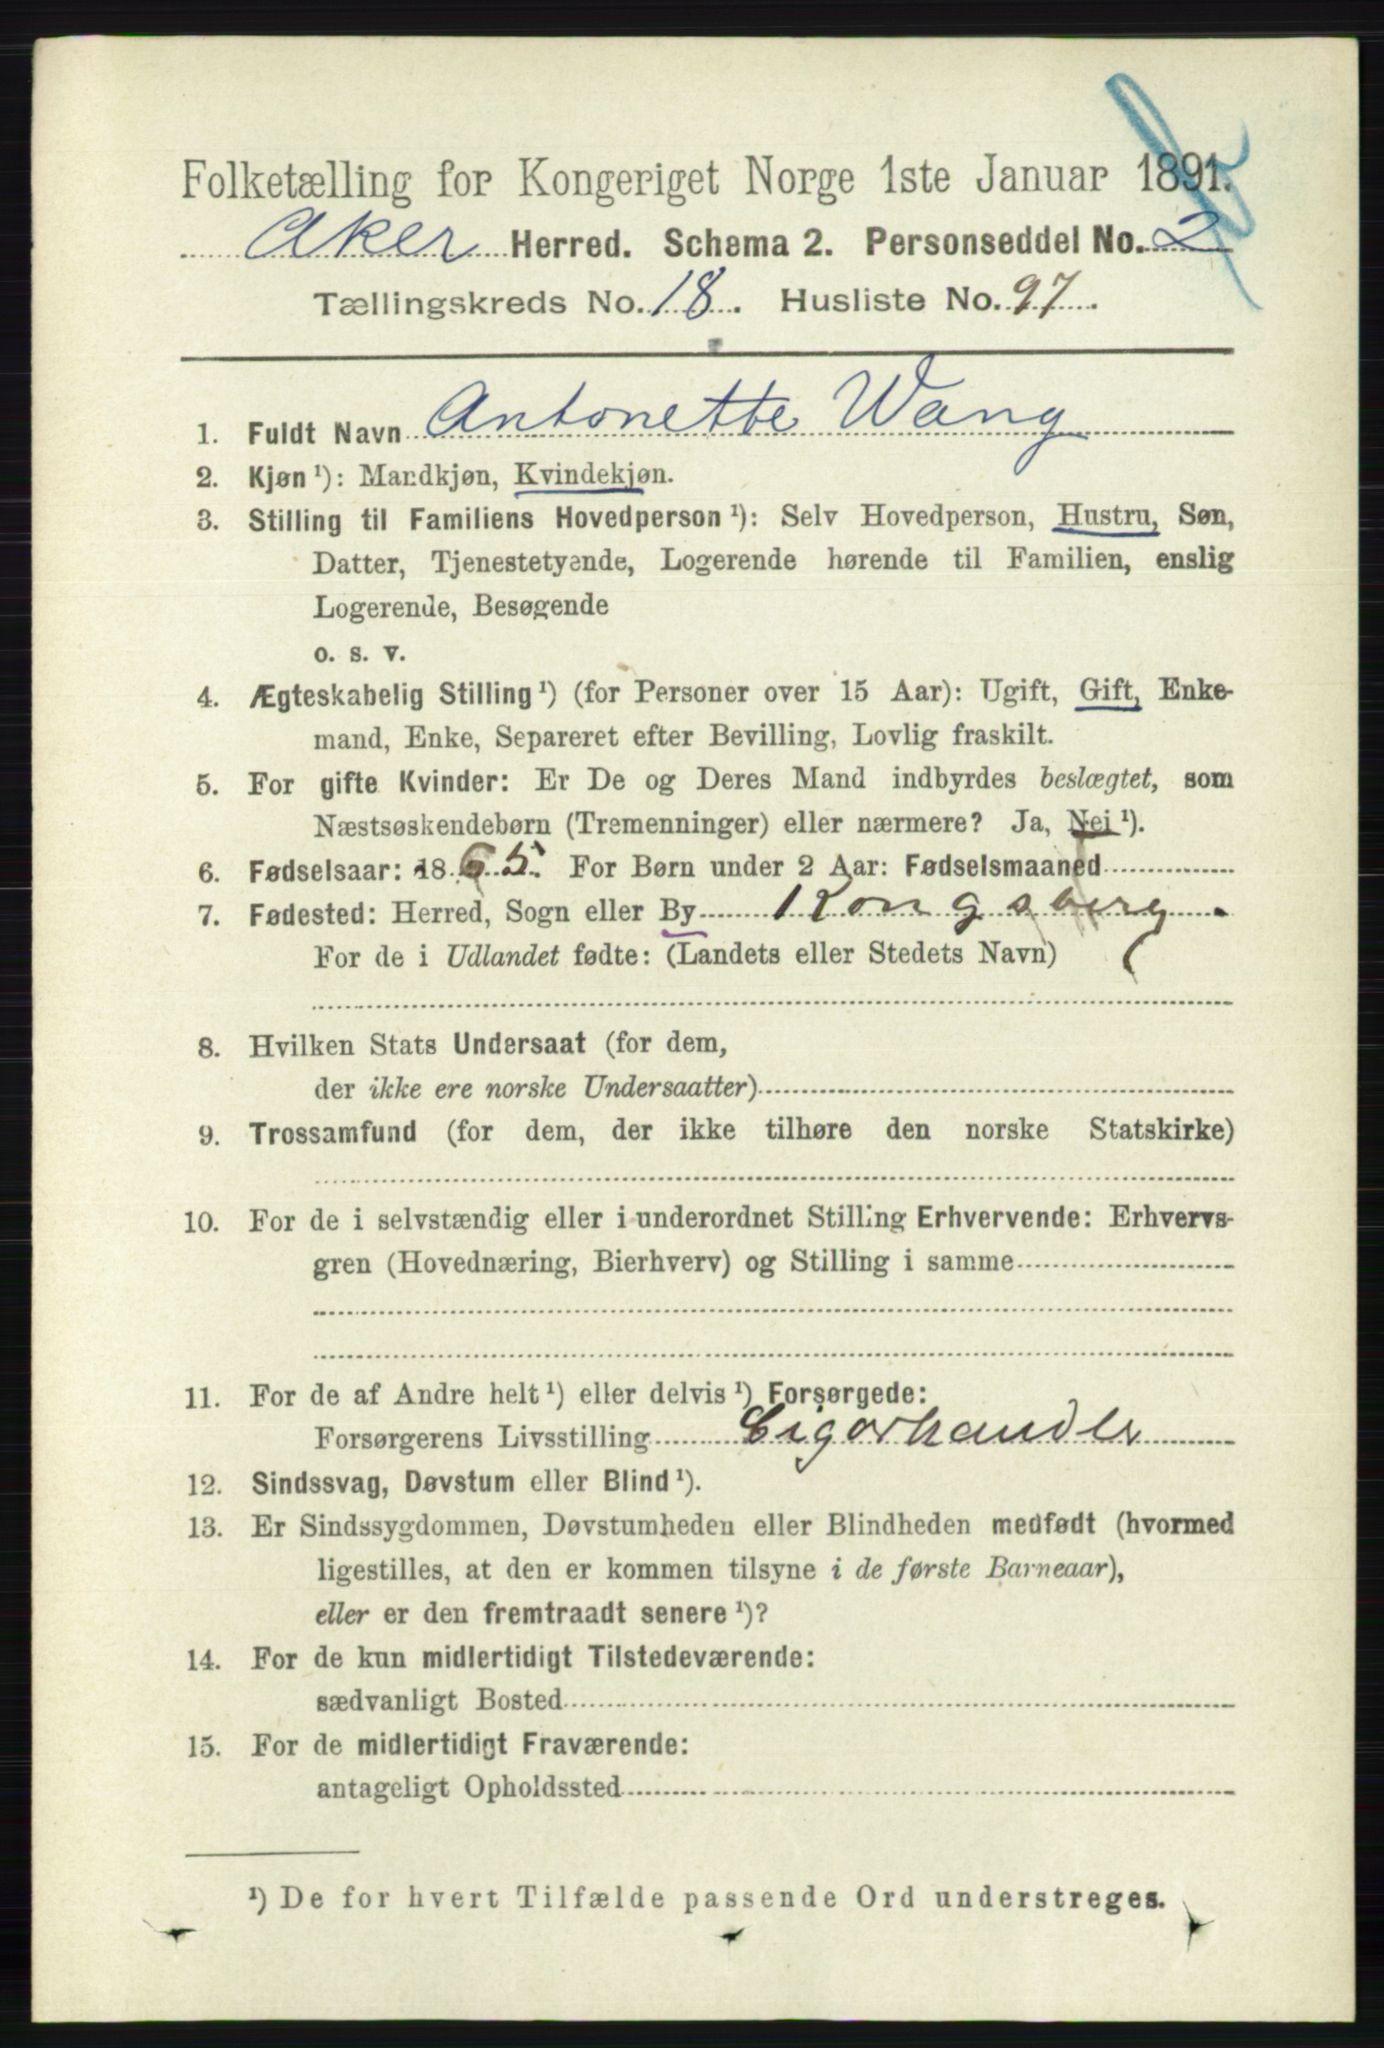 Folketælling for Kongeriget Norge 1ste Januar 1891.
Aker Herred. Schema 2. Personseddel No. 2
Tællingskreds No. 18. Husliste No. 97.
1. Fuldt Navn Antonette Wang
2. Kjøn ¹): Mandkjøn, Kvindekjøn.
3. Stilling til Familiens Hovedperson ¹): Selv Hovedperson, Hustru, Søn,
Datter, Tjenestetyende, Logerende hørende til Familien, enslig
Logerende, Besøgende
o. s. v.
4. Ægteskabelig Stilling ¹) (for Personer over 15 Aar): Ugift, Gift, Enke-
mand, Enke, Separeret efter Bevilling, Lovlig fraskilt.
5. For gifte Kvinder: Er De og Deres Mand indbyrdes beslægtet, som
Næstsøskendebørn (Tremenninger) eller nærmere? Ja, Nei ¹).
6. Fødselsaar: 1865. For Børn under 2 Aar: Fødselsmaaned
7. Fødested: Herred, Sogn eller By Kongsberg.
For de i Udlandet fødte: (Landets eller Stedets Navn)
8. Hvilken Stats Undersaat (for dem,
der ikke ere norske Undersaatter)
9. Trossamfund (for dem, der ikke tilhøre den norske Statskirke)
10. For de i selvstændig eller i underordnet Stilling Erhvervende: Erhvervs-
gren (Hovednæring, Bierhverv) og Stilling i samme
11. For de af Andre helt ¹) eller delvis ¹) Forsørgede:
Forsørgerens Livsstilling Cigarhandler
12. Sindssvag, Døvstum eller Blind ¹).
13. Er Sindssygdommen, Døvstumheden eller Blindheden medfødt (hvormed
ligestilles, at den er kommen tilsyne i de første Barneaar),
eller er den fremtraadt senere ¹)?
14. For de kun midlertidigt Tilstedeværende:
sædvanligt Bosted
15. For de midlertidigt Fraværende:
antageligt Opholdssted
¹) De for hvert Tilfælde passende Ord understreges.